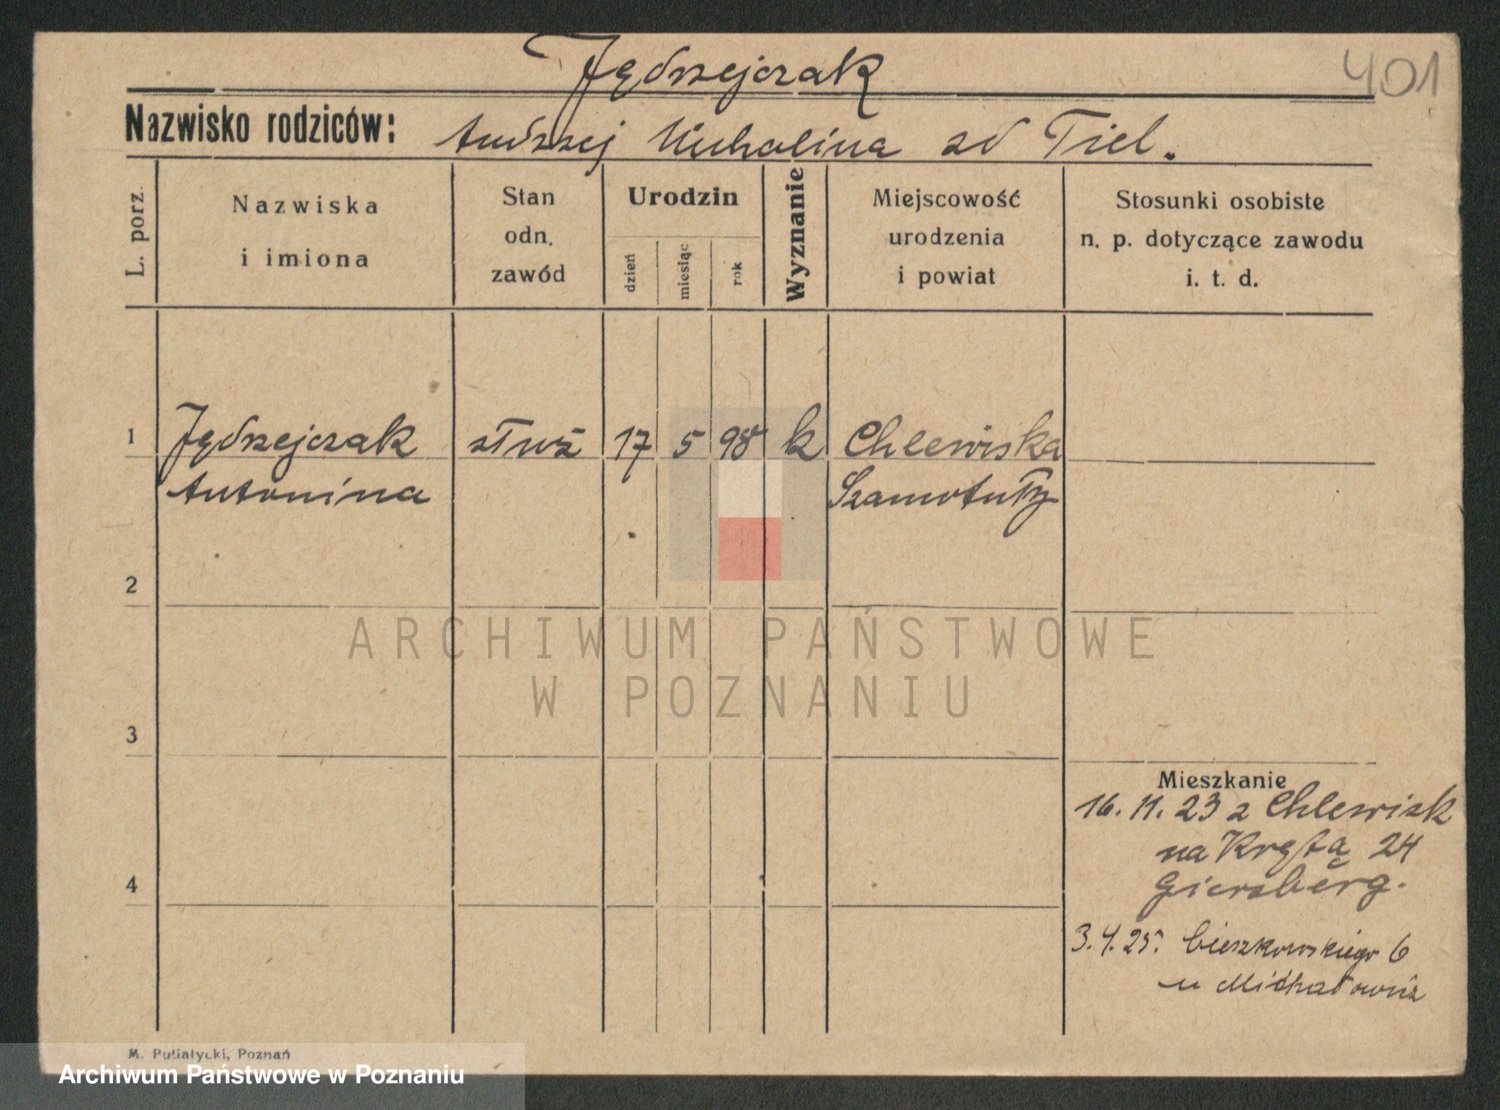 Jędrzejczak
401
Nazwisko rodziców: Andrzej Michalina zd Tiel.
L. porz.
Nazwiska
i imiona
Stan
odn.
zawód
Urodzin
dzień
miesiąc
rok
Wyznanie
Miejscowość
urodzenia
i powiat
Stosunki osobiste
n. p. dotyczące zawodu
i. t. d.
1 Jędrzejczak służ 17 5 98 k Chlewiska
Antonina Szamotuły
2
ARCHIWUM PAŃSTWOWE
W POZNANIU
3
Mieszkanie
16. 11. 23 z Chlewisk
na Krętą 24
4
Giersberg.
3. 4. 25. Cieszkowskiego 6
u
M. Putiatycki, Poznań
Archiwum Państwowe w Poznaniu